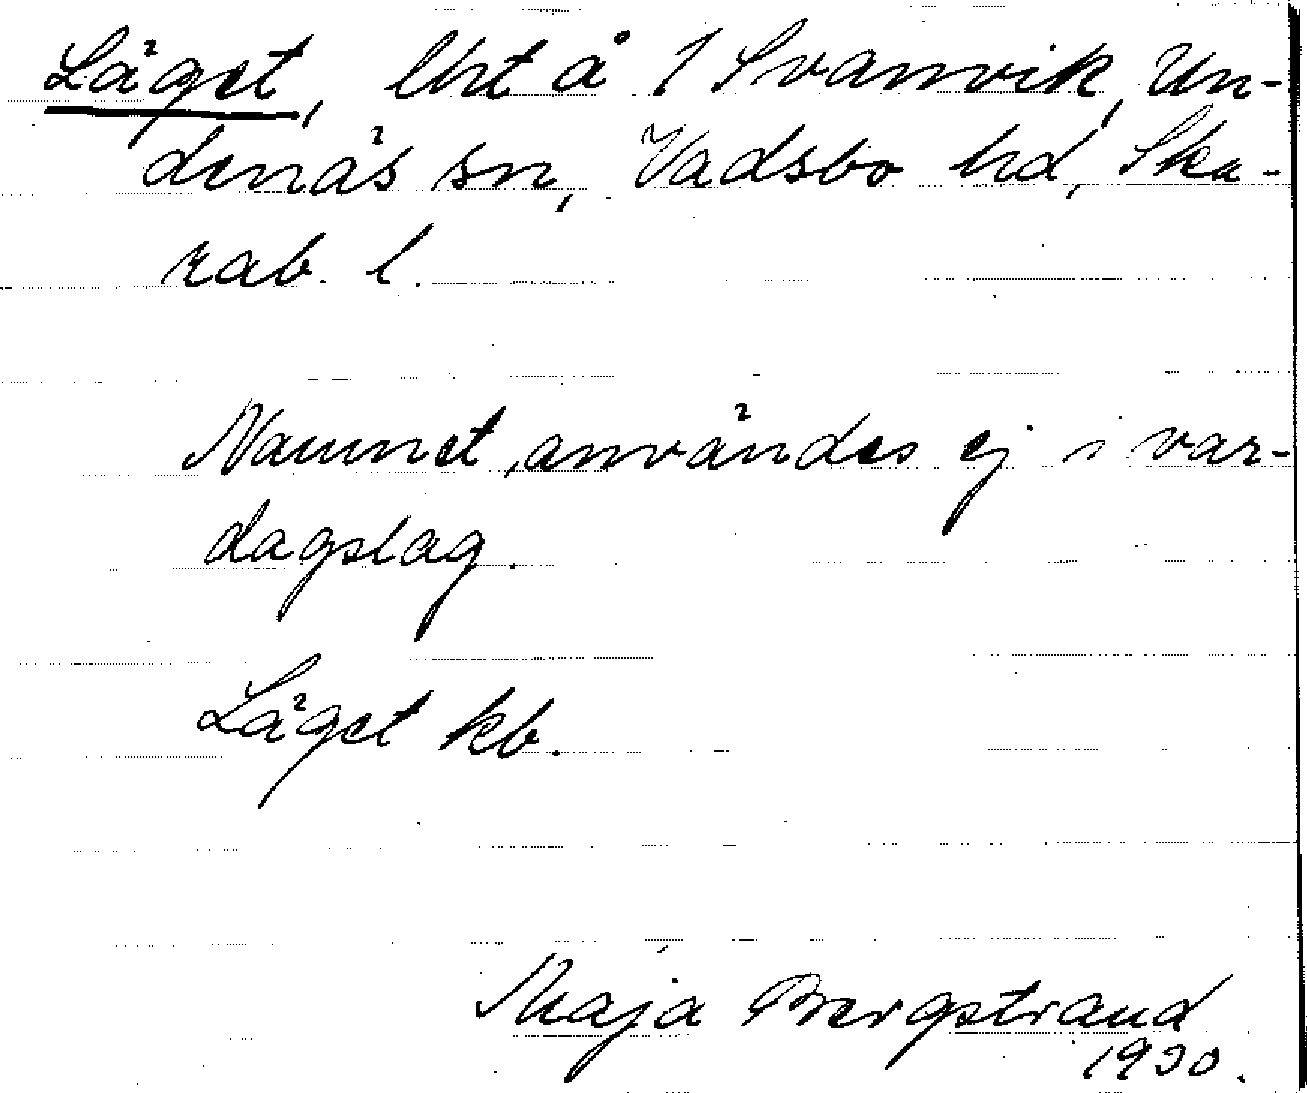 Läget, lht å 1 Svanvik, Un-
denäs sn, Vadsbo hd, Ska-
rab. l.
Namnet användes ej i var-
dagslag.
Läget kb.
Maja Bergstrand
1930.